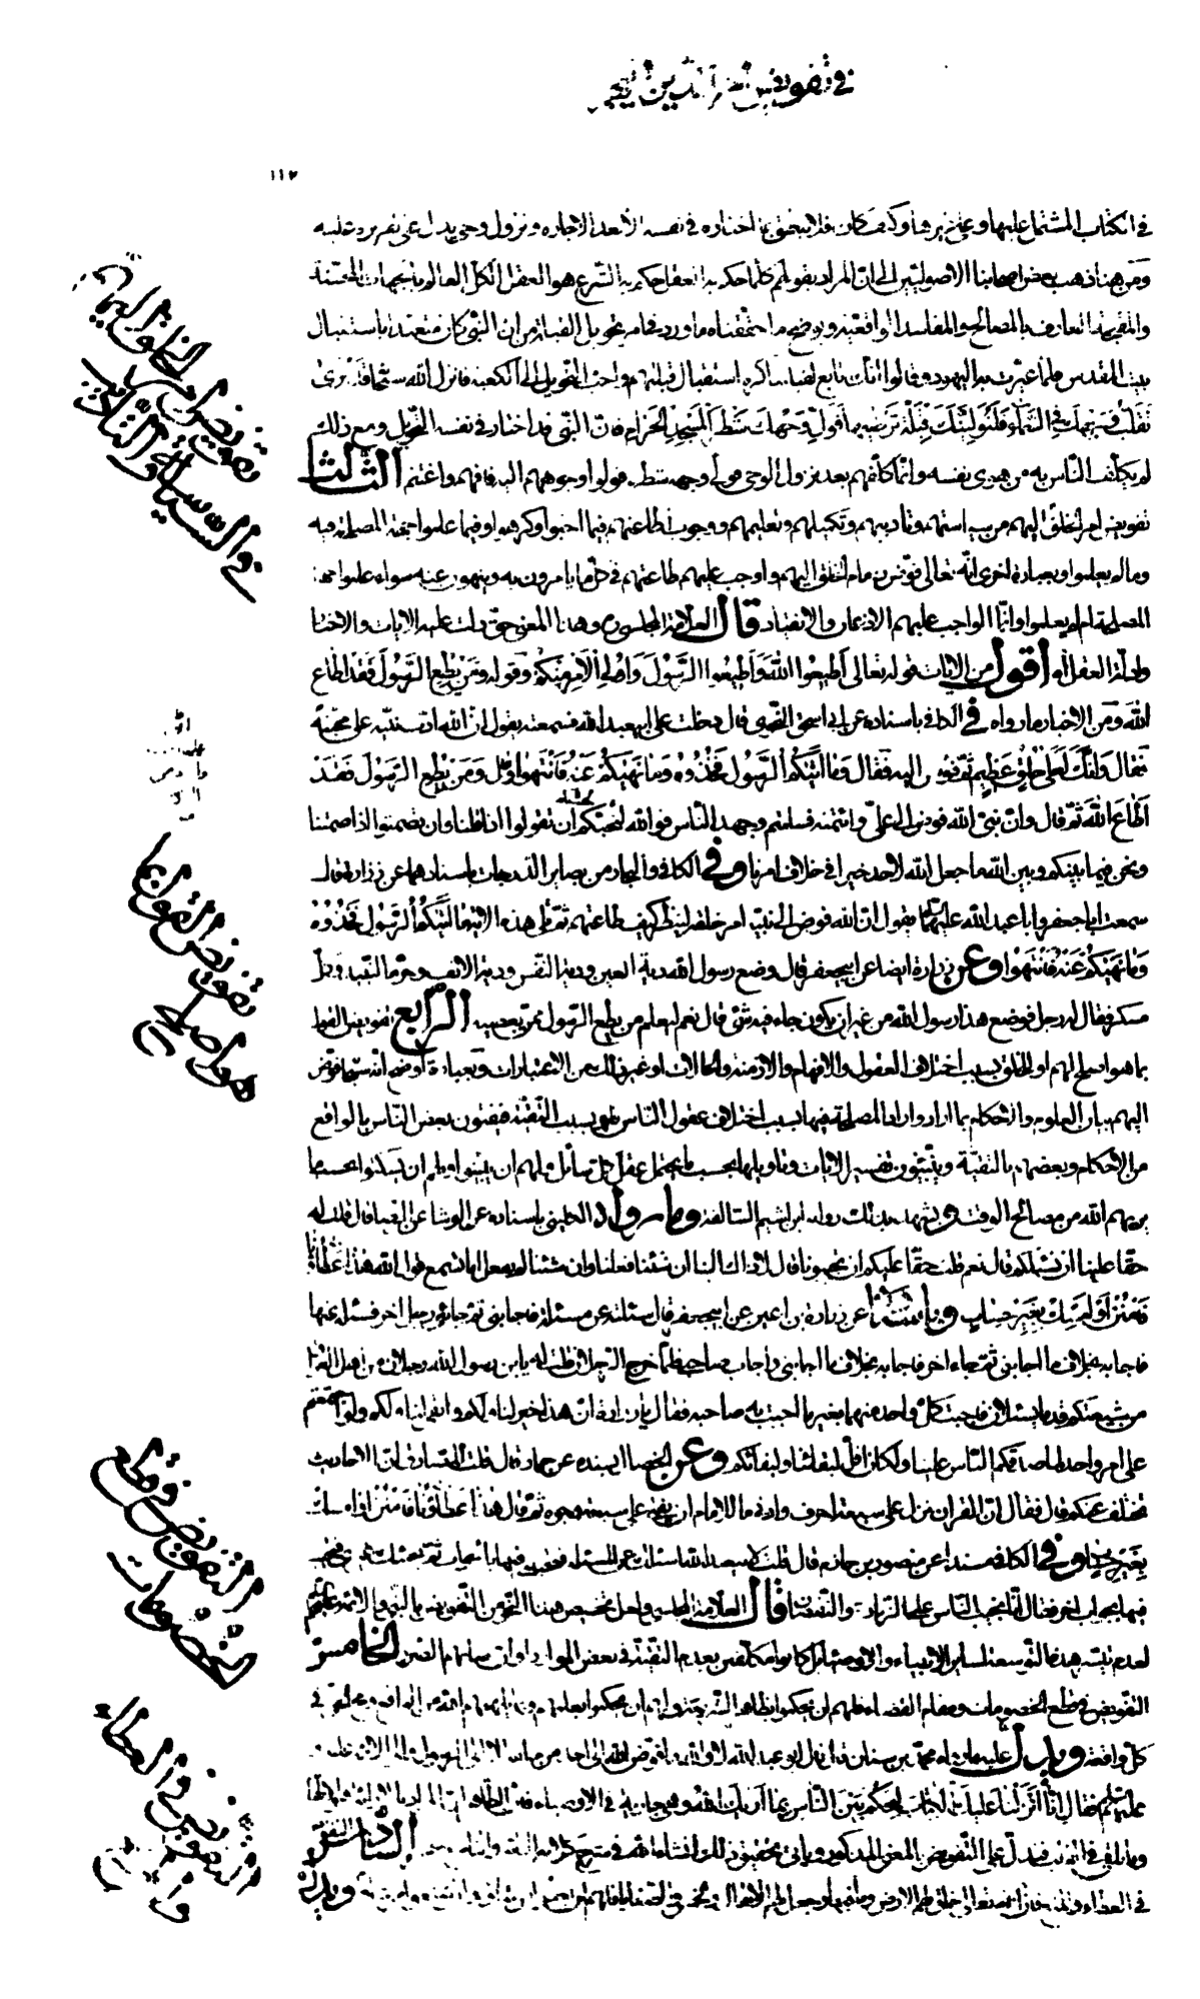 في تفويض امر الدين اليهم
١١٧
في الكتاب المشتمل عليها وعلى غيرها وكيف كان فلا يتحقق ما اختاره في نفسه الا بعد الاجازه ونزول وحي يدل على تقريره عليه
ومن هنا ذهب بعض اصحابنا الاصوليين الى ان المراد بقولهم كلما حكم به العقل حكم به الشرع هو العقل الكل العالم بالجهات المحسنة
والمقبحة العارف بالمصالح والمفاسد الواقعية ويوضح ما حققناه ما ورد في امر تحويل القبلة من ان النبي كان متعبدا باستقبال
بيت المقدس فلما عيرت به اليهود وقالوا انت تابع لقبلتنا كره استقبال قبلتهم واحب التحويل الى الكعبه فانزل الله سبحانه قد نرى
تقلب وجهك في السماء فلنولينك قبلة ترضيها فول وجهك شطر المسجد الحرام فان النبي قد اختار في نفسه التحويل ومع ذلك
لم يكلف الناس به من هوى نفسه وانما كلفهم بعد نزول الوحي فولى وجهه شطره فولوا وجوههم اليه فافهم واغتنم الثالث
تفويض امر الخلق اليهم من سياستهم وتأديبهم وتكميلهم وتعليمهم ووجوب اطاعتهم فيما احبوا وكرهوا وفيما علموا جهة المصلحة فيه
وما لم يعلموا وبعبارة اخرى انه تعالى فوض زمام الخلق اليهم واوجب عليهم طاعتهم في كل ما يامرون به وينهون عنه سواء علموا جهة
المصلحة ام لم يعلموا وانما الواجب عليهم الاذعان والانقياد قال العلامة المجلسي ره وهذا المعنى حق دلت عليه الايات والاخبار
وادلة العقل اه اقول من الايات قوله تعالى اطيعوا الله واطيعوا الرسول واولي الامر منكم وقوله ومن يطع الرسول فقد اطاع
الله ومن الاخبار ما رواه في الكافي باسناده عن ابي اسحق النحوي قال دخلت على ابي عبد الله فسمعته يقول ان الله ادب نبيه على محبته
فقال وانك لعلى خلق عظيم ثم فوض اليه فقال وما اتيكم الرسول فخذوه وما نهيكم عنه فانتهوا وقال ومن يطع الرسول فقد
اطاع الله ثم قال وان نبي الله فوض الى علي وائتمنه فسلمتم وجحد الناس فوالله لنحبكم ان تقولوا اذا قلنا وان تصمتوا اذا صمتنا
ونحن فيما بينكم وبين الله ما جعل الله لاحد خيرا في خلاف امرنا وفي الكافي والبحار من بصاير الدرجات باسنادهما عن زرارة قال
سمعت ابا جعفر وابا عبد الله عليهما يقول ان الله فوض الى نبيه امر خلقه لينظر كيف طاعتهم ثم تلا هذه الاية ما اتيكم الرسول فخذوه
وما نهيكم عنه فانتهوا وعن زرارة ايضا عن ابي جعفر قال وضع رسول الله دية العين ودية النفس ودية الانف وحرم النبيذ وكل
مسكر فقال له رجل فوضع هذا رسول الله من غير ان يكون جاء فيه شئ قال نعم ليعلم من يطع الرسول ممن يعصيه الرابع تفويض القول
بما هو اصلح لهم او للخلق بسبب اختلاف العقول والافهام والازمنة والحالات او غير ذلك من الاعتبارات وبعبارة اوضح انه سبحانه فوض
اليهم بيان العلوم والاحكام بما ارادوا وراوا المصلحة فيها بسبب اختلاف عقول الناس او بسبب التقية فيفتون بعض الناس بالواقع
من الاحكام وبعضهم بالتقية ويبينون تفسير الايات وتاويلها بحسب ما يحتمل عقل كل سائل ولهم ان يبينوا ولهم ان يسكتوا بحسب ما
يريهم الله من مصالح الوقت ويشهد بذلك رواية ابن اشيم السالفة وما رواه الكليني باسناده عن الوشا عن الرضا قال قلت له
حقا علينا ان نسئلكم قال نعم قلت حقا عليكم ان تجيبونا قال لا ذاك الينا ان شئنا فعلنا وان شئنا لم نفعل اما تسمع قول الله هذا عطاؤنا
فامنن او امسك بغير حساب وباسناده عن زرارة بن اعين عن ابي جعفر قال سئلته عن مسئلة فاجابني ثم جائه رجل اخر فسئله عنها
فاجابه بخلاف ما اجابني ثم جاء اخر فاجابه بخلاف ما اجابني واجاب صاحبي فلما خرج الرجلان قلت له يابن رسول الله رجلان من اهل العراق
من شيعتكم قدما يسئلان فاجبت كل واحد منهما بغير ما اجبت به صاحبه فقال يا زرارة ان هذا خير لنا ولكم وابقى لنا ولكم ولو اجتمعتم
على امر واحد لصدقكم الناس علينا ولكان اقل لبقائنا وبقائكم وعن الخصال بسنده عن حماد قال قلت للصادق ان الاحاديث
تختلف عنكم قال فقال ان القران نزل على سبعة احرف وادنى ما للامام ان يفتي على سبعة وجوه ثم قال هذا عطاؤنا فامنن او امسك
بغير حساب وفي الكافي مسندا عن منصور بن حازم قال قلت لابي عبد الله ما بالي اسئلك عن المسئلة فتجيبني فيها بالجواب ثم يجيئك غيري فتجيبه
فيها بجواب اخر فقال انا نجيب الناس على الزيادة والنقصان قال العلامة المجلسي ولعل تخصيص هذا النحو من التفويض بالنبي والائمة عليهم
لعدم تيسر هذه التوسعة لساير الانبياء والاوصياء بل كانوا مكلفين بعدم التقية في بعض الموارد وان اصابهم الضرر الخامس
التفويض في قطع الخصومات ومقام القضاء فلهم ان يحكموا بظاهر الشريعة ولهم ان يحكموا بعلمهم وبما يلهمهم الله من الواقع في
كل واقعة ويدل عليه ما رواه محمد بن سنان قال قال ابو عبد الله لا والله ما فوض الله الى احد من خلقه الا الى الرسول والى الائمة
عليهم فقال انا انزلنا عليك الكتاب لتحكم بين الناس بما اراك الله وهي جارية في الاوصياء
في التفويض المعنى المذكور وياتي تحقيق ذلك انشاء الله في السادس التفويض
في العطاء والمنع فان الله تعالى خلق لهم الارض وما فيها وجعل لهم الانفال والخمس ويدل
تفويض امر الخلق اليهم
في السياسة والتاديب
تفويض القول بما
هو اصلح
التفويض في قطع
الخصومات
التفويض في العطاء
والمنع